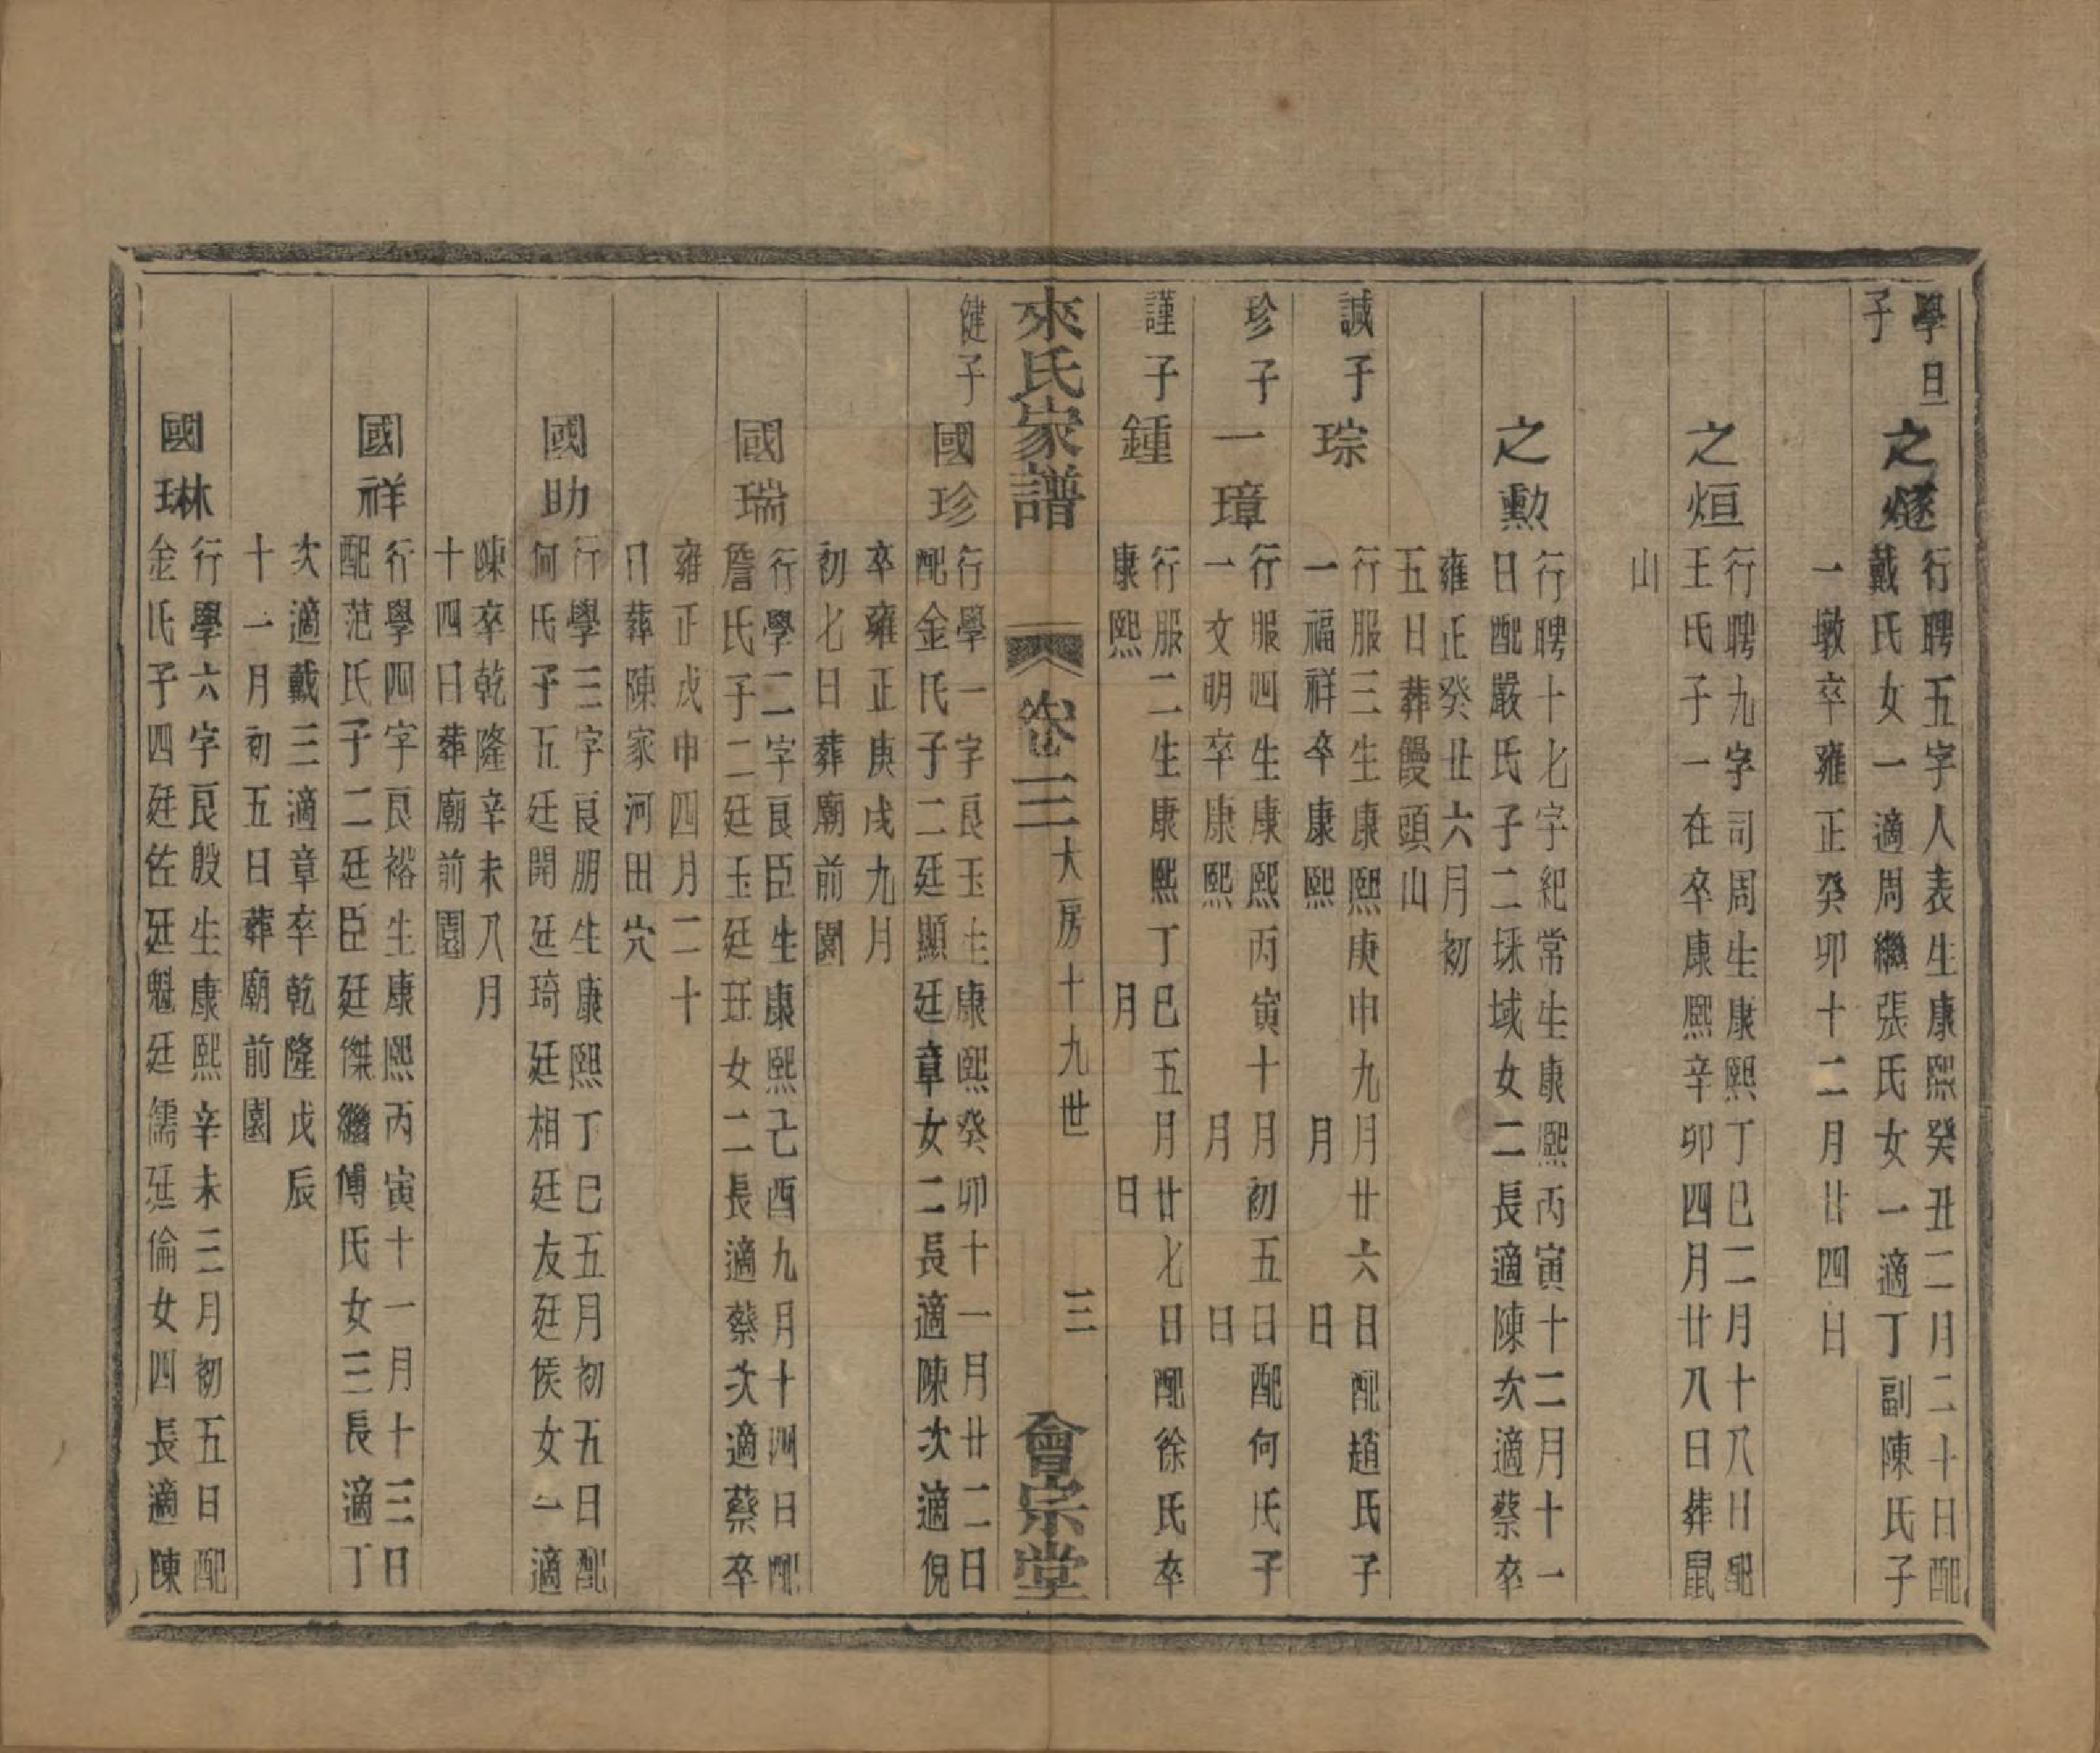 學旦
子
之燧
行聘五字人表生康熙癸丑二月二十日配
戴氏女一適周繼張氏女一適丁副陳氏子
一墩卒雍正癸卯十二月廿四日
之烜
行聘九字司周生康熙丁巳二月十八日配
王氏子一在卒康熙辛卯四月廿八日葬鼠
山
之勳
行聘十七字紀常生康熙丙寅十二月十一
日配嚴氏子二埰域女二長適陳次適蔡卒
雍正癸丑六月初
五日葬饅頭山
誠子
琮
行服三生康熙庚申九月廿六日配趙氏子
一福祥卒康熙 月 日
珍子
一璋
行服四生康熙丙寅十月初五日配何氏子
一文明卒康熙 月 日
謹子
鍾
行服二生康熙丁巳五月廿七日配徐氏卒
康熙 月 日
來氏家譜 卷三 大房十九世 三 會宗堂
健子
國珍
行學一字良玉生康熙癸卯十一月廿二日
配金氏子二廷顯廷章女二長適陳次適倪
卒雍正庚戌九月
初七日葬廟前園
國瑞
行學二字良臣生康熙己酉九月十四日配
詹氏子二廷玉廷玨女二長適蔡次適蔡卒
雍正戊申四月二十
日葬陳家河田穴
國助
行學三字良朋生康熙丁巳五月初五日配
何氏子五廷開廷琦廷相廷友廷侯女一適
陳卒乾隆辛未八月
十四日葬廟前園
國祥
行學四字良裕生康熙丙寅十一月十三日
配范氏子二廷臣廷傑繼傅氏女三長適丁
次適戴三適章卒乾隆戊辰
十一月初五日葬廟前園
國琳
行學六字良殷生康熙辛未三月初五日配
金氏子四廷佐廷魁廷儒廷倫女四長適陳